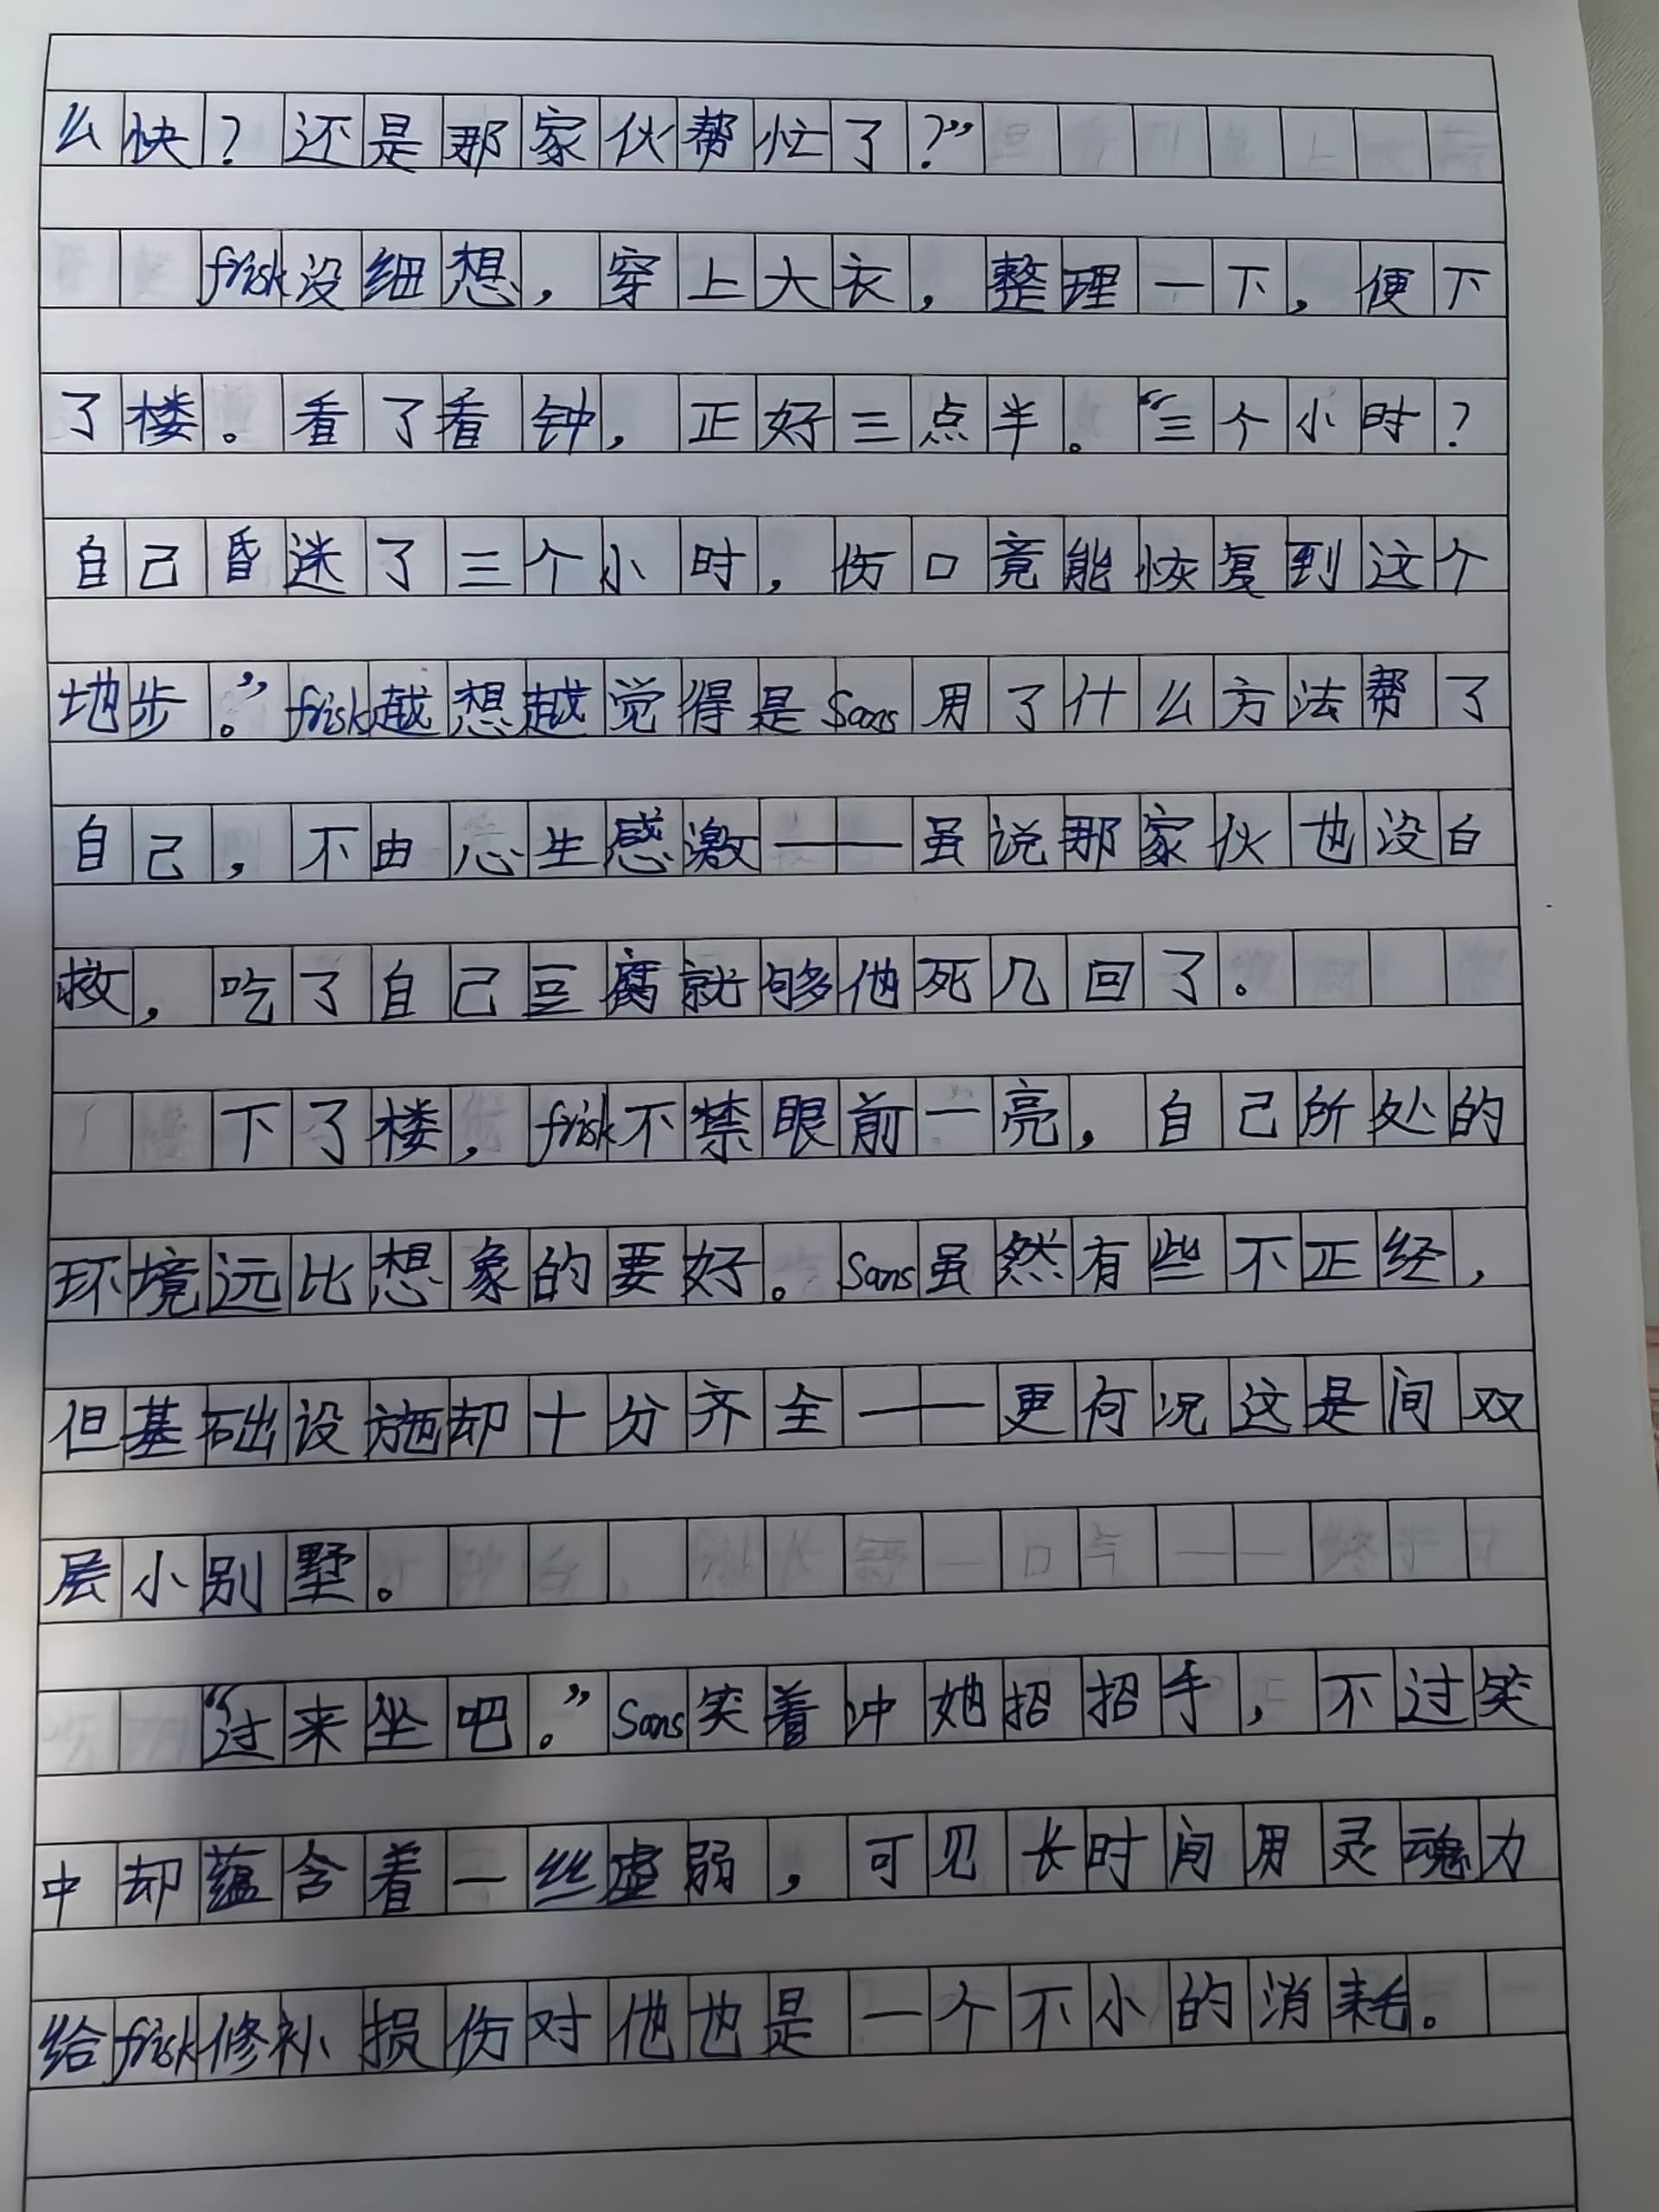 么快？还是那家伙帮忙了？”
frisk没细想，穿上大衣，整理一下，便下
了楼。看了看钟，正好三点半。“三个小时？
自己昏迷了三个小时，伤口竟能恢复到这个
地步。”frisk越想越觉得是Sans用了什么方法帮了
自己，不由心生感激——虽说那家伙也没白
救，吃了自己豆腐就够他死几回了。
下了楼，frisk不禁眼前一亮，自己所处的
环境远比想象的要好。Sans虽然有些不正经，
但基础设施却十分齐全——更何况这是间双
层小别墅。
“过来坐吧。”Sans笑着冲她招招手，不过笑
中却蕴含着一丝虚弱，可见长时间用灵魂力
给frisk修补损伤对他也是一个不小的消耗。